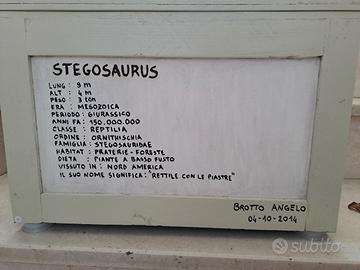 STEGOSAURUS
LUNG : 9 m
ALT : 4 m
PESO : 3 ton
ERA : MESOZOICA
PERIODO : GIURASSICO
ANNI FA : 150.000.000
CLASSE : REPTILIA
ORDINE : ORNITHISCHIA
FAMIGLIA : STEGOSAURIDAE
HABITAT : PRATERIE - FORESTE
DIETA : PIANTE A BASSO FUSTO
VISSUTO IN : NORD AMERICA
IL SUO NOME SIGNIFICA : "RETTILE CON LE PIASTRE"
BROTTO ANGELO
04-10-2014
subito